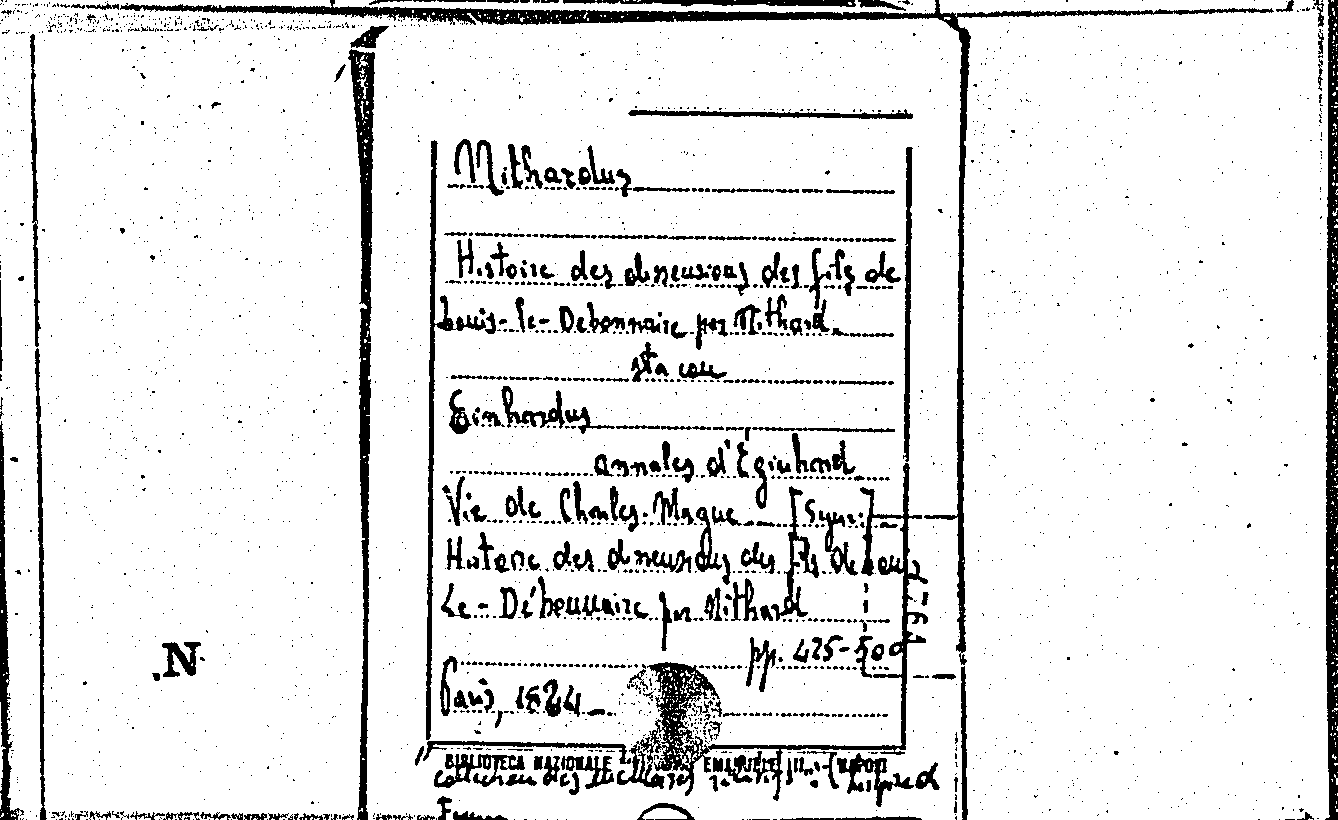 Nithardus
Histoire des dissensions des fils de
Louis-le-Debonnaire par Nithard.
sta con
Einhardus
annales d'Éginhard
Vie de Charles-Magne [Segue]
Histoire des dissensions des fils de Louis
Le-Débonnaire par Nithard
pp. 425-500
Paris, 1824
BIBLIOTECA NAZIONALE EMANUELE III - NAPOLI
collection des mémoires relatifs à l'histoire de
France
.N